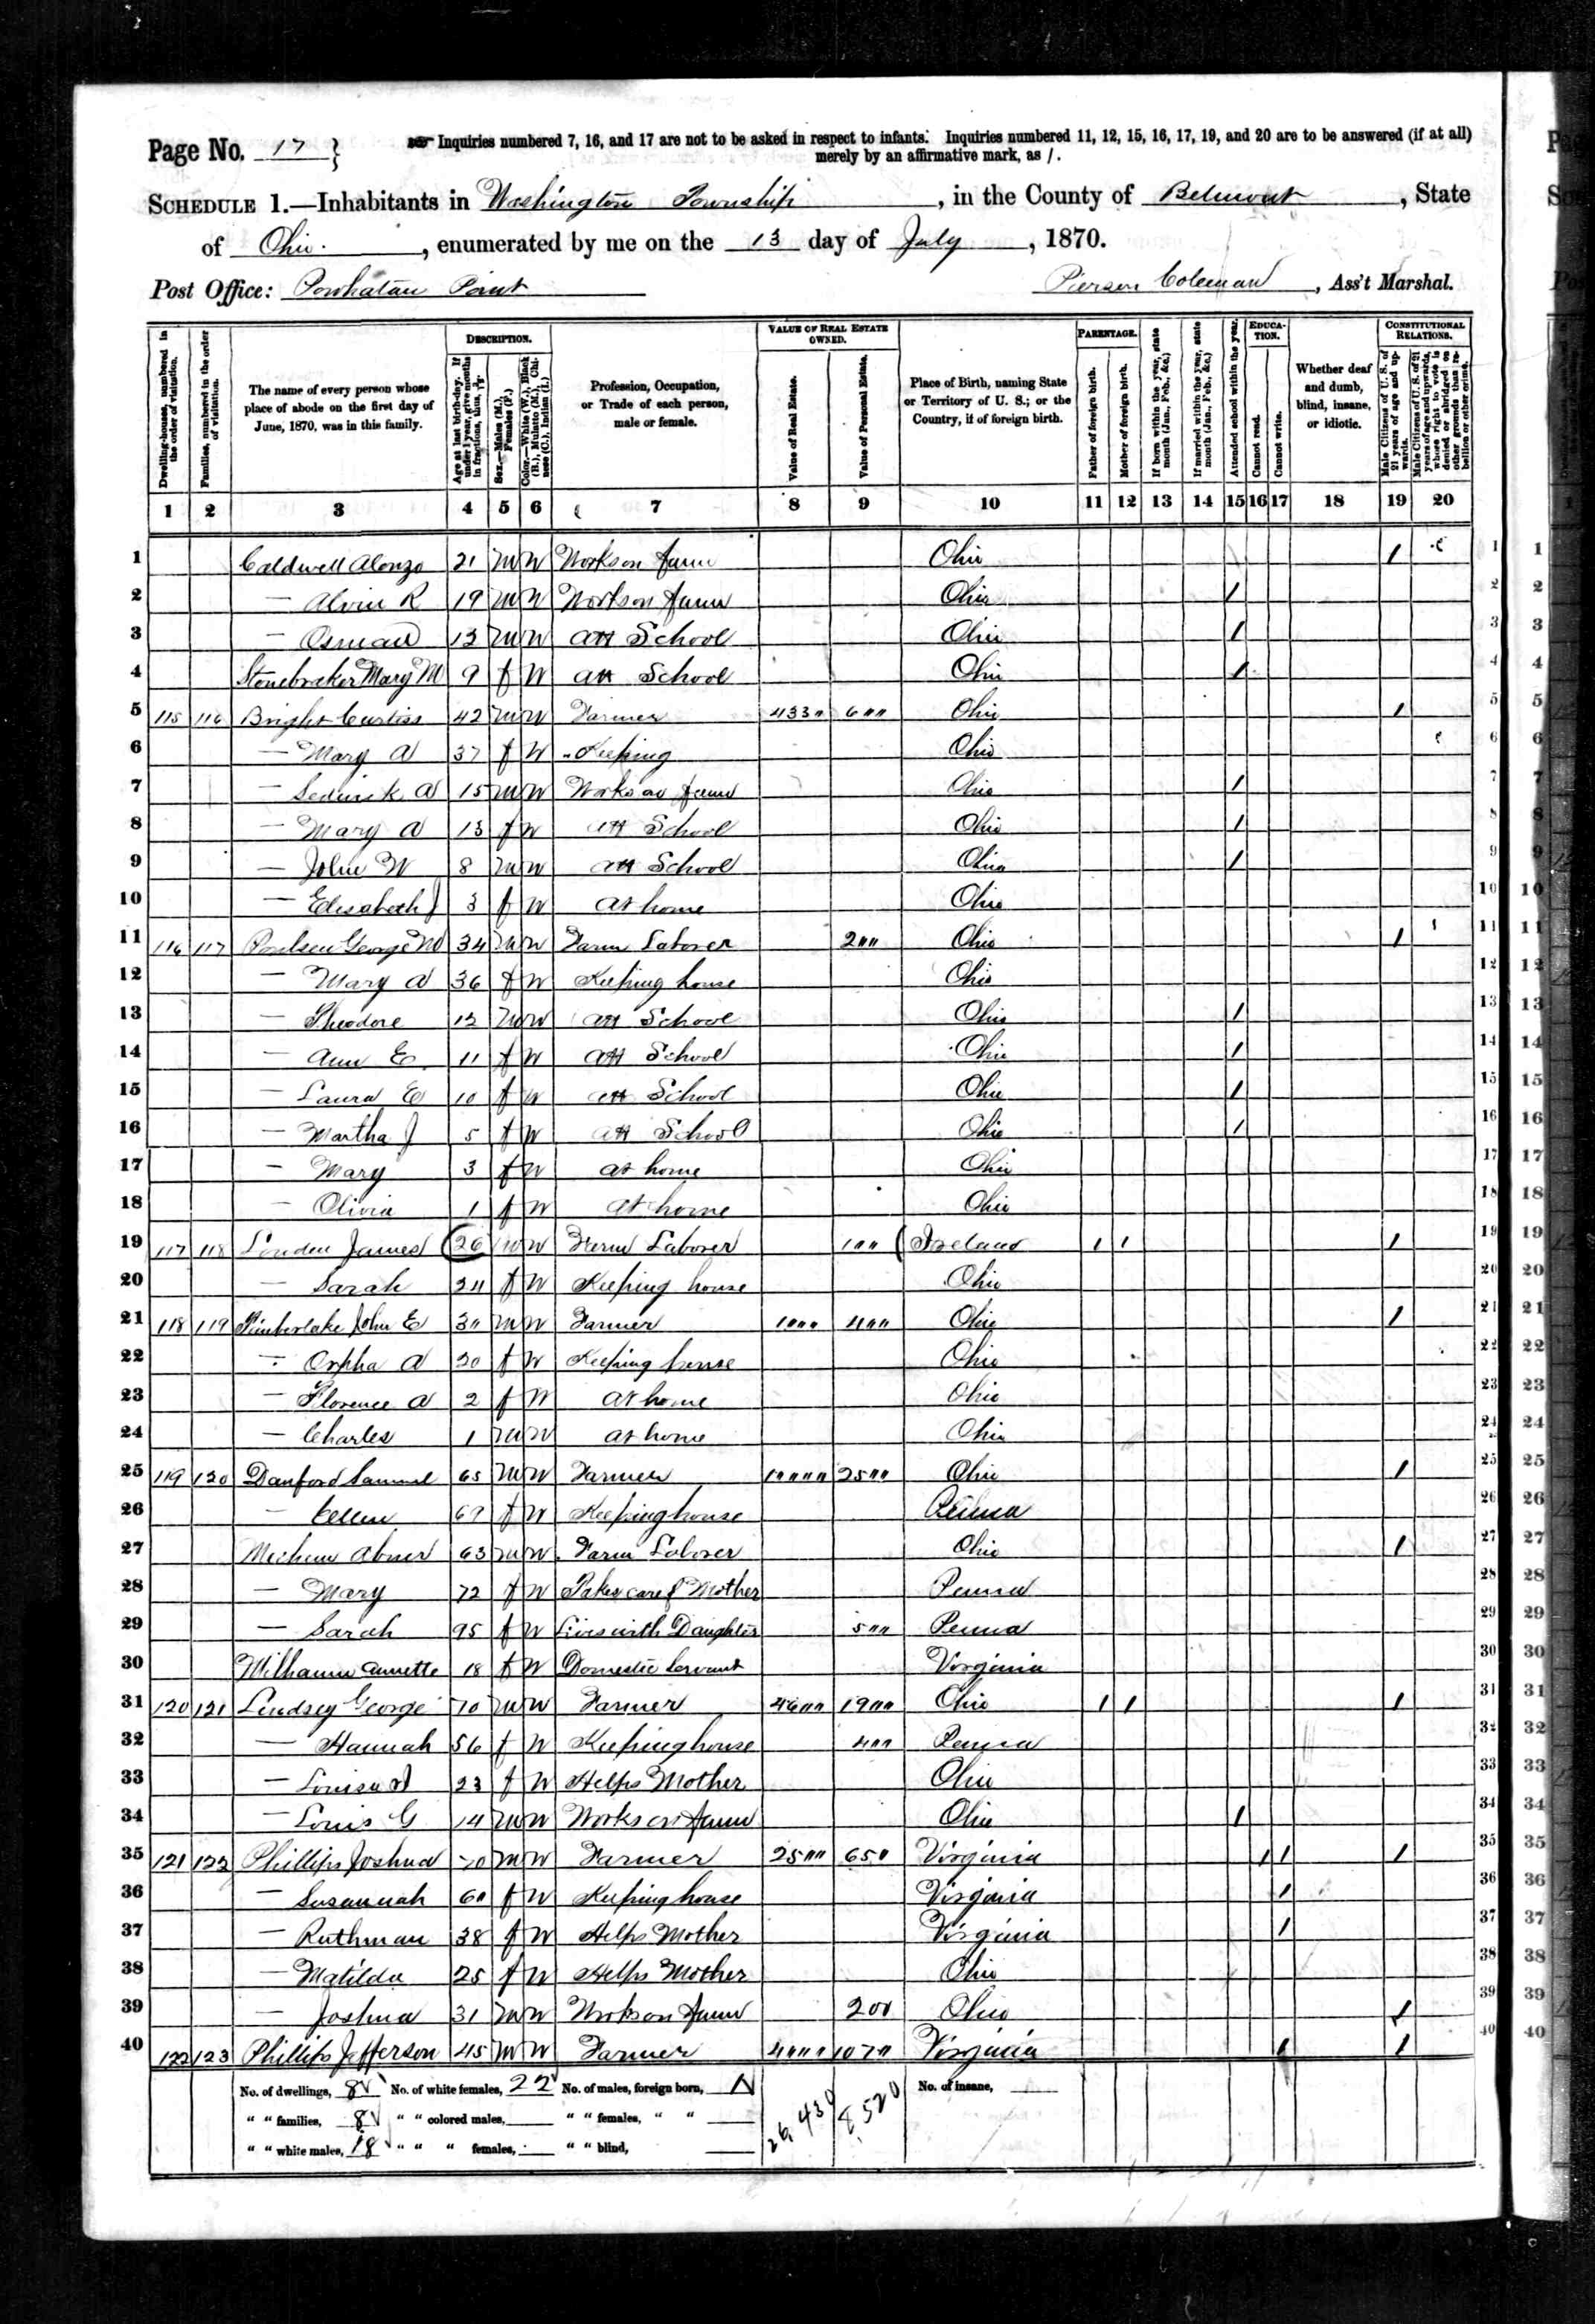 Page No. 17 } Inquiries numbered 7, 16, and 17 are not to be asked in respect to infants. Inquiries numbered 11, 12, 15, 16, 17, 19, and 20 are to be answered (if at all)
merely by an affirmative mark, as /.
SCHEDULE 1.—Inhabitants in Washington Township, in the County of Belmont, State
of Ohio, enumerated by me on the 13 day of July, 1870.
Post Office: Powhatan Point Pierson Coleman, Ass't Marshal.
Dwelling-houses, numbered in the order of visitation.
Families, numbered in the order of visitation.
The name of every person whose place of abode on the first day of June, 1870, was in this family.
DESCRIPTION.
Age at last birth-day. If under 1 year, give months in fractions, thus, 3/12.
Sex.—Males (M.), Females (F.)
Color.—White (W.), Black (B.), Mulatto (M.), Chinese (C.), Indian (I.)
Profession, Occupation, or Trade of each person, male or female.
VALUE OF REAL ESTATE OWNED.
Value of Real Estate.
Value of Personal Estate.
Place of Birth, naming State or Territory of U. S.; or the Country, if of foreign birth.
PARENTAGE.
Father of foreign birth.
Mother of foreign birth.
If born within the year, state month (Jan., Feb., &c.)
If married within the year, state month (Jan., Feb., &c.)
Attended school within the year.
EDUCATION.
Cannot read.
Cannot write.
Whether deaf and dumb, blind, insane, or idiotic.
CONSTITUTIONAL RELATIONS.
Male Citizens of U. S. of 21 years of age and upwards.
Male Citizens of U. S. of 21 years of age and upwards, whose right to vote is denied or abridged on other grounds than rebellion or other crime.
1 2 3 4 5 6 7 8 9 10 11 12 13 14 15 16 17 18 19 20
1 Caldwell Alonzo 21 M W Works on farm Ohio / 1
2 — Alvin R 19 M W Works on farm Ohio / 2
3 — Osman 13 M W Att School Ohio / 3
4 Stonebraker Mary M 9 f W Att School Ohio / 4
5 115 116 Bright Curtiss 42 M W Farmer 4330 600 Ohio / 5
6 — Mary A 37 f W " Keeping Ohio 6
7 — A 15 M W Works on farm Ohio / 7
8 — Mary A 13 f W Att School Ohio / 8
9 — John W 8 M W Att School Ohio / 9
10 — Elisabeth J 3 f W At home Ohio 10
11 116 117 George 34 M W Farm Laborer 200 Ohio / 11
12 — Mary A 36 f W Keeping house Ohio 12
13 — Theodore 12 M W Att School Ohio / 13
14 — Ann E. 11 f W Att School Ohio / 14
15 — Laura E 10 f W Att School Ohio / 15
16 — Martha J 5 f W Att School Ohio / 16
17 — Mary 3 f W At home Ohio 17
18 — Olivia 1 f W At home Ohio 18
19 117 118 Louden James 26 M W Farm Laborer 100 Ireland / / / 19
20 — Sarah 24 f W Keeping house Ohio 20
21 118 119 Timberlake John E 30 M W Farmer 1000 400 Ohio / 21
22 — Orpha A 20 f W Keeping house Ohio 22
23 — Florence A 2 f W At home Ohio 23
24 — Charles 1 M W At home Ohio 24
25 119 120 Danford Samuel 65 M W Farmer 10000 2500 Ohio / 25
26 — Ellen 69 f W Keeping house Penna 26
27 Mechem Abner 63 M W Farm Laborer Ohio / 27
28 — Mary 72 f W Takes care of Mother Penna 28
29 — Sarah 95 f W Lives with Daughter 500 Penna 29
30 Annette 18 f W Domestic Servant Virginia 30
31 120 121 Lindsey George 70 M W Farmer 4600 1900 Ohio / / / 31
32 — Hannah 56 f W Keeping house 400 Penna 32
33 — Louisa A 23 f W Helps Mother Ohio 33
34 — Louis G 14 M W Works on farm Ohio / 34
35 121 122 Phillips Joshua 70 M W Farmer 2500 650 Virginia / / / 35
36 — Susannah 60 f W Keeping house Virginia / 36
37 — Ruthman 38 f W Helps Mother Virginia / 37
38 — Matilda 25 f W Helps Mother Ohio 38
39 — Joshua 31 M W Works on farm 200 Ohio / 39
40 122 123 Phillips Jefferson 45 M W Farmer 4000 1070 Virginia / / 40
No. of dwellings, 8 No. of white females, 22 No. of males, foreign born, 1 26,430 8520 No. of insane,
" " families, 8 " " colored males, " " females, " "
" " white males, 18 " " " females, " " blind,